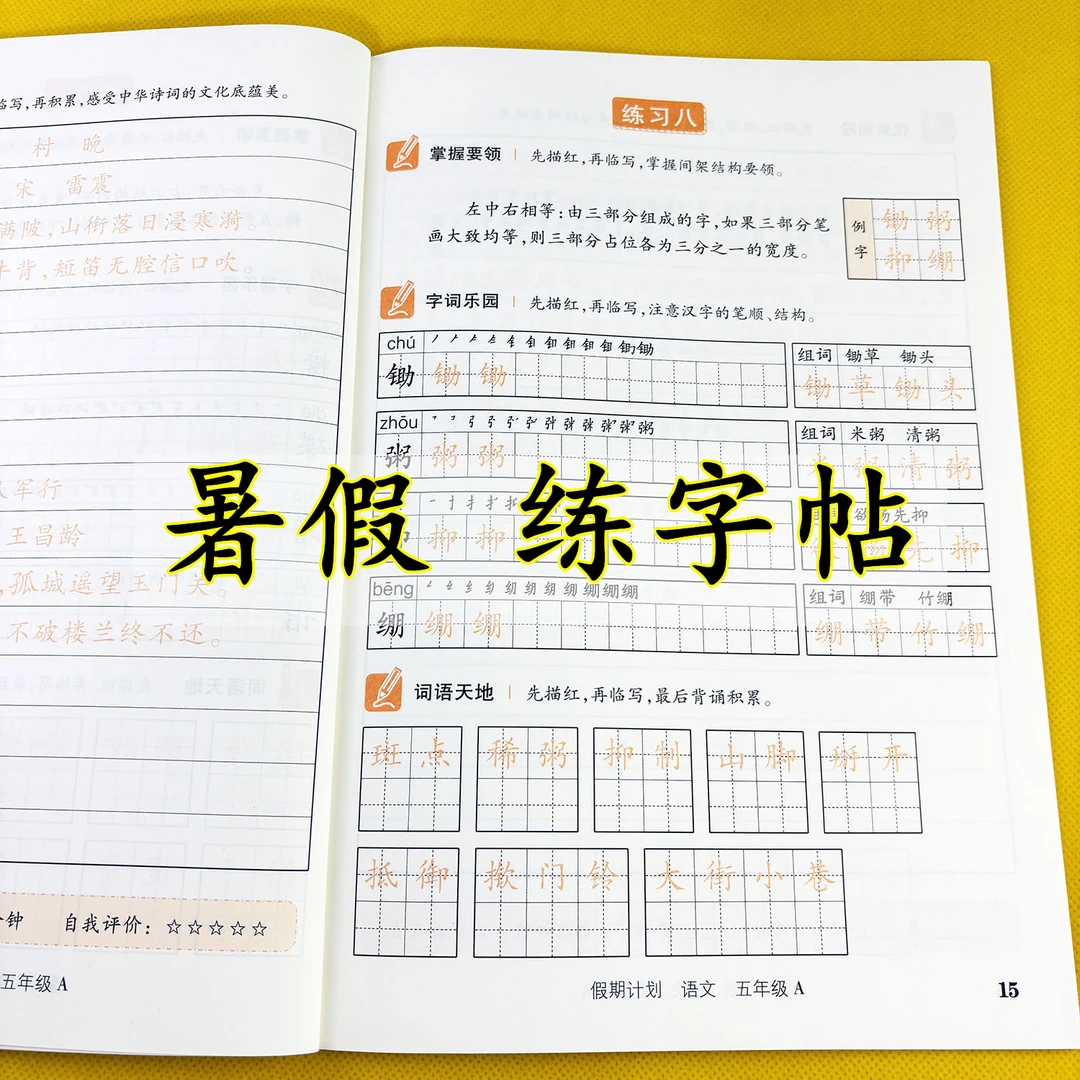 临写,再积累,感受中华诗词的文化底蕴美。
村 晚
宋 雷震
满陂,山衔落日浸寒漪。
牛背,短笛无腔信口吹。
从军行
王昌龄
,孤城遥望玉门关。
不破楼兰终不还。
分钟 自我评价:☆☆☆☆☆
五年级 A
练习八
掌握要领 | 先描红,再临写,掌握间架结构要领。
左中右相等:由三部分组成的字,如果三部分笔
画大致均等,则三部分占位各为三分之一的宽度。
例字
锄 粥
抑 绷
字词乐园 | 先描红,再临写,注意汉字的笔顺、结构。
chú
锄 锄 锄
组词 锄草 锄头
锄 草 锄 头
zhōu
粥 粥 粥
组词 米粥 清粥
米 粥 清 粥
抑 抑 抑
欲扬先抑
扬 先 抑
bēng
绷 绷 绷
组词 绷带 竹绷
绷 带 竹 绷
暑假 练字帖
词语天地 | 先描红,再临写,最后背诵积累。
斑点 稀粥 抑制 山脚 掰开
抵御 揿门铃 大街小巷
假期计划 语文 五年级 A
15